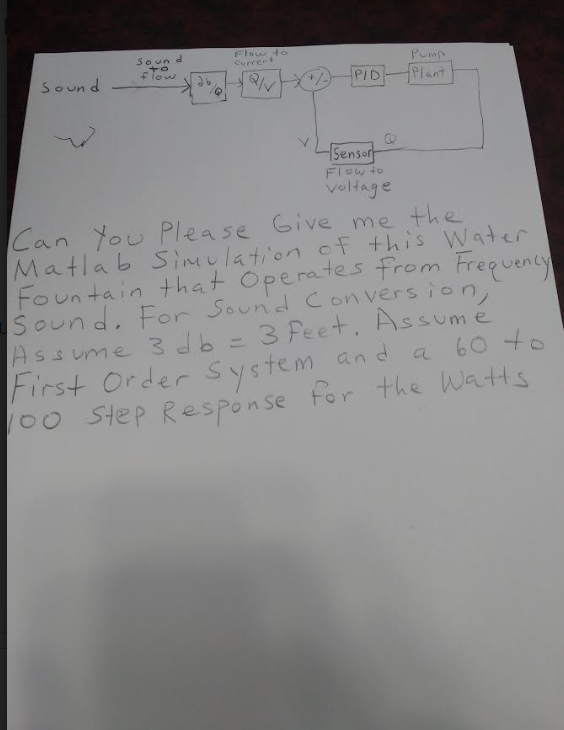 Sound
to
flow
Flow to
current
Pump
Sound
db/Q
Q/V
+/-
PID
Plant
V
Sensor
Q
Flow to
voltage
Can You Please Give me the
Matlab Simulation of this Water
Fountain that Operates from Frequency
Sound. For Sound Conversion,
Assume 3 db = 3 feet. Assume
First Order System and a 60 to
100 Step Response for the Watts